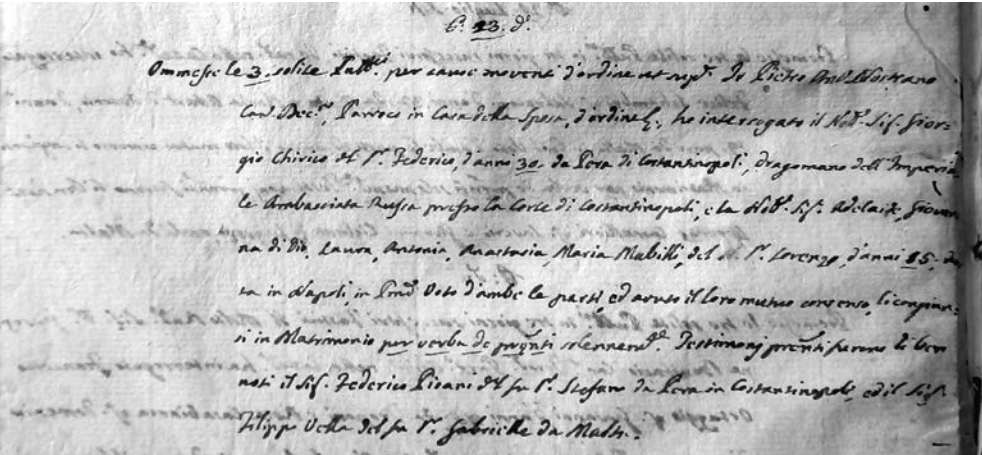 6. 23. d.º
Ommesse le 3. solite Pubb.ni per cause moventi d'ordine ut sup.ª Io Pietro Ant.º Nostrano
Can.º Dec.no, Parroco in Casa della Sposa, d'ordine &., ho interrogato il Nob. Sig. Gior-
gio Chirico del S.r Federico, d'anni 30. da Pera di Costantinopoli, dragomano dell'Imperia-
le Ambasciata Russa presso la Corte di Costantinopoli, e la Nob. Sig. Adelaide, Giovan-
na di Dio, Laura, Antonia, Anastasia, Maria Mabilli, del S.r Lorenzo, d'anni 15. da-
ta in Napoli, in Voto d'ambe le parti, ed avuto il loro mutuo consenso, li congiun-
si in Matrimonio per verba de prēnti solennem.te Testimonj prēnti furono li ben
noti il Sig. Federico Pisani del fu S.r Stefano da Pera in Costantinopoli, ed il Sig.
Filippo Vella del fu S.r Gabrielle da Malta.